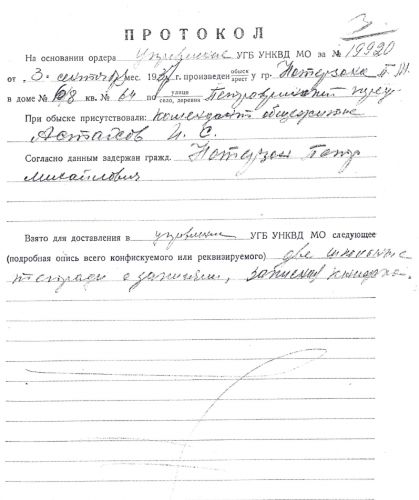 3.
ПРОТОКОЛ
На основании ордера управление УГБ УНКВД МО за № 19920
от „3“ сентября мес. 193 г. произведен обыск арест у гр. П. М.
в доме № кв. № 64 по улица село, деревня
При обыске присутствовали: комендант общежития
И. С.
Согласно данным задержан гражд. Петр
Михайлович
Взято для доставления в управление УГБ УНКВД МО следующее
(подробная опись всего конфискуемого или реквизируемого) две школьные
тетради с записями, записная книжка.